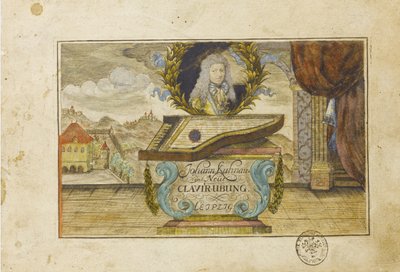 Johann Kuhnaus
Neue
CLAVIR-UBUNG
LEIPZIG